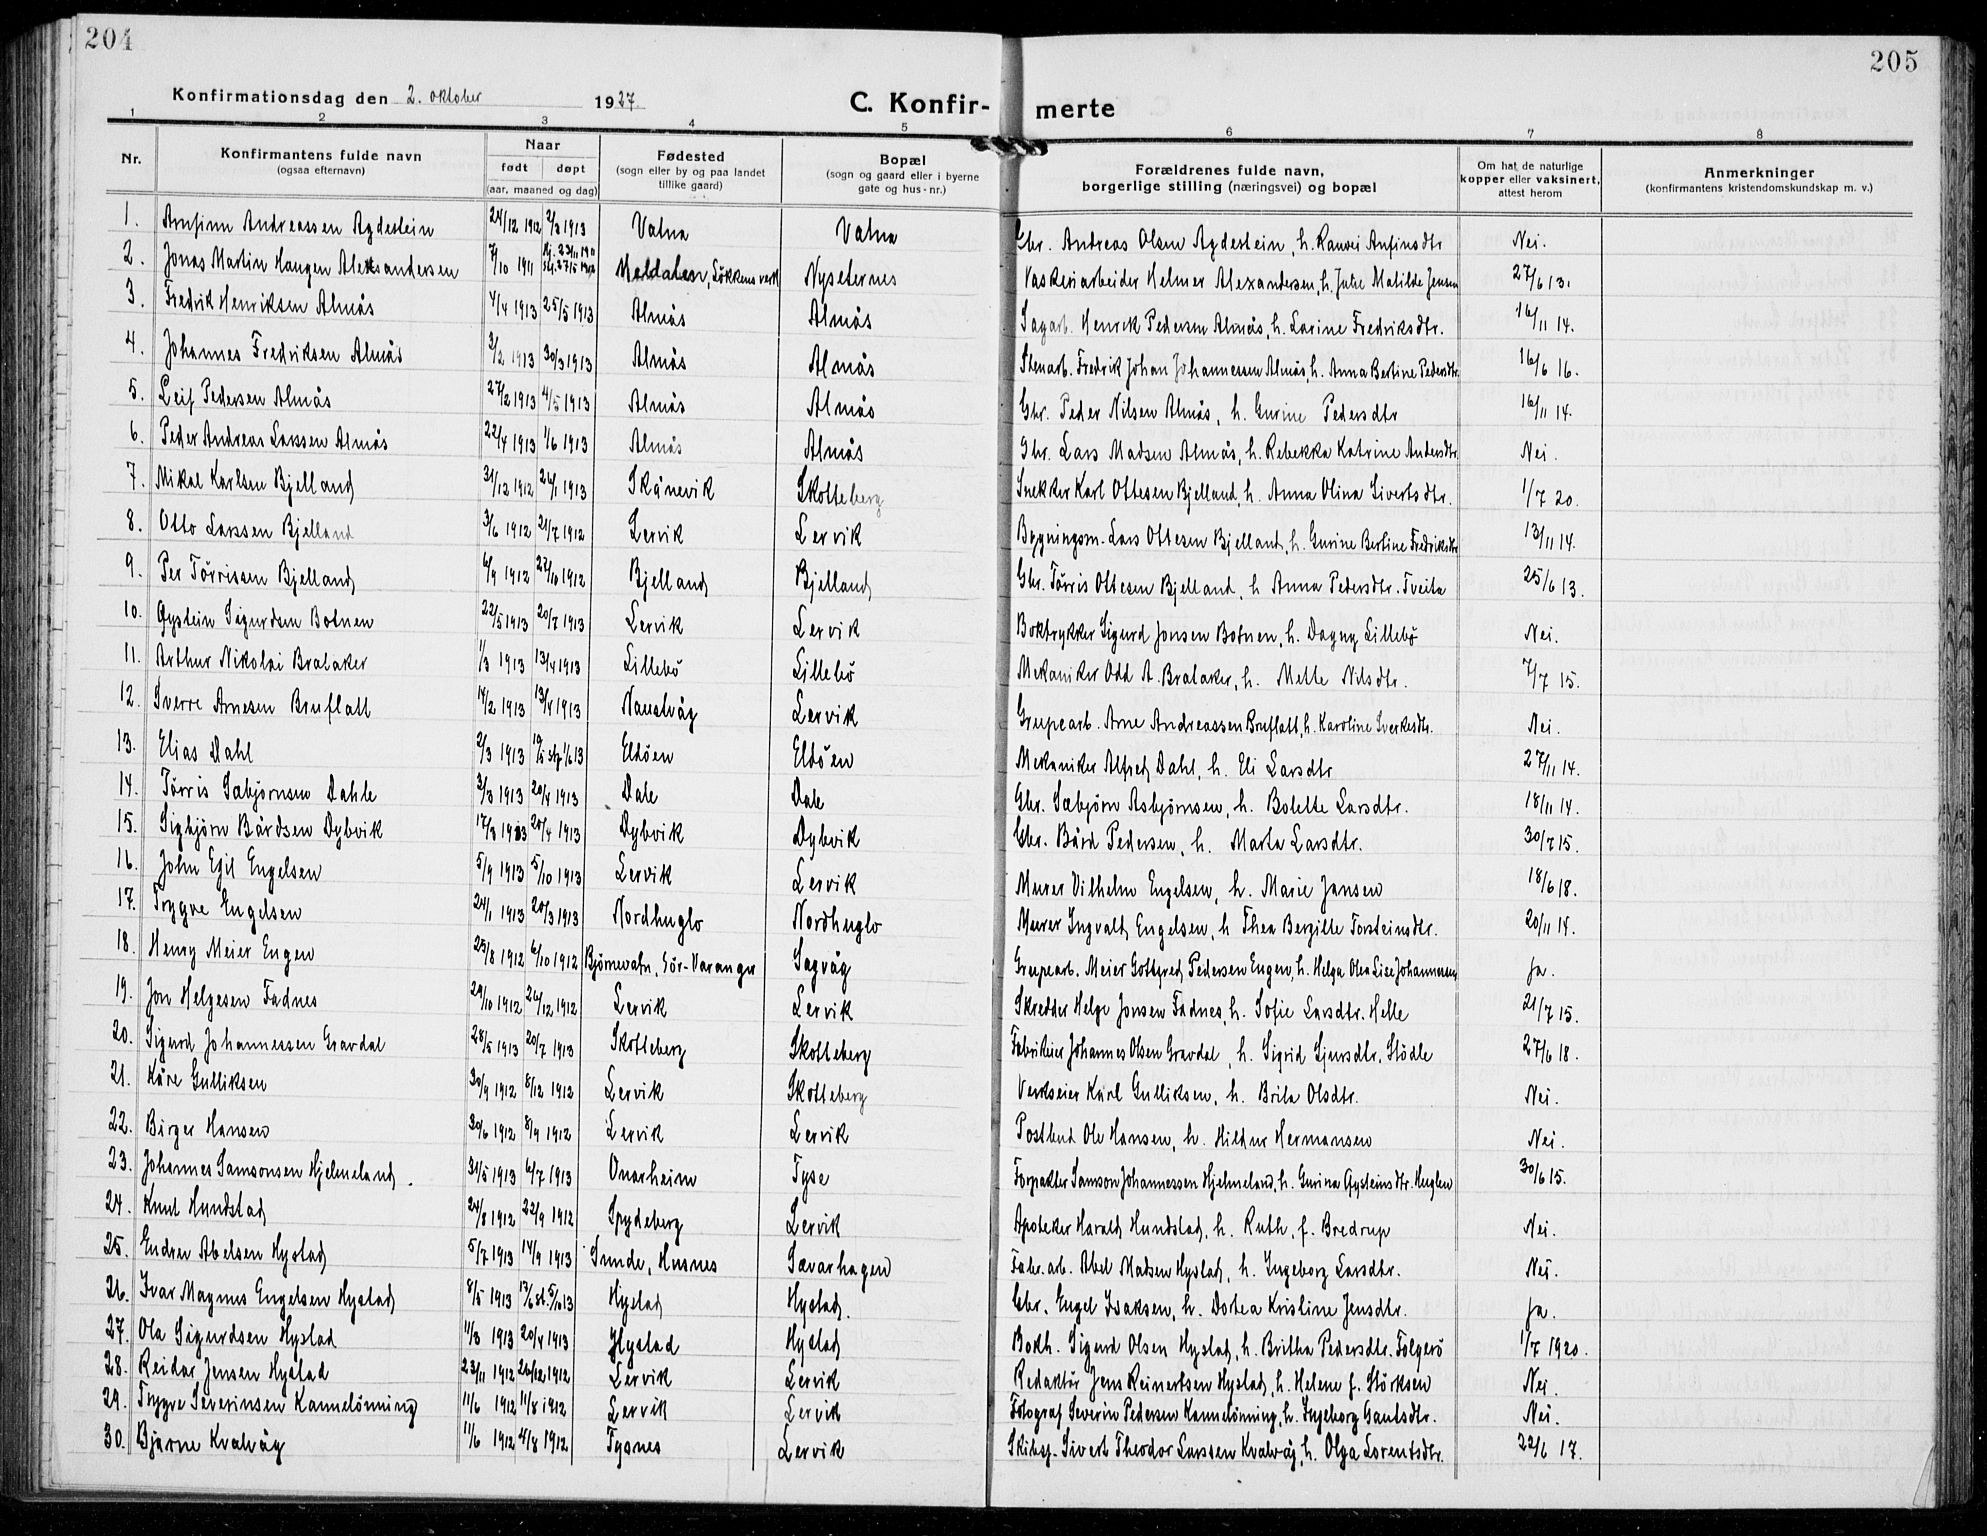 204
205
Konfirmationsdag den 2. oktober 1927
C. Konfir- merte
1 2 3 4 5 6 7 8
Nr.
Konfirmantens fulde navn (ogsaa efternavn)
Naar født døpt (aar, maaned og dag)
Fødested (sogn eller by og paa landet tillike gaard)
Bopæl (sogn og gaard eller i byerne gate og hus-nr.)
Forældrenes fulde navn, borgerlige stilling (næringsvei) og bopæl
Om hat de naturlige kopper eller vaksinert, attest herom
Anmerkninger (konfirmantens kristendomskundskap m. v.)
1. Arnfinn Andreassen Agdestein 24/12 1912 2/3 1913 Valna Valna Gbr. Andreas Olsen Agdestein, h. Ranvei Anfinsdtr Nei.
2. Jonas Martin Haugen Aleksandersen 7/10 1911 Meldalen, Løkkens verk Nyseternes Vaskeriarbeider Helmer Alexandersen, h. Julie Matilde Jensen 27/6 13.
3. Fredrik Henriksen Almås 4/4 1913 25/5 1913 Almås Almås Sagarb. Henrik Pedersen Almås, h. Larine Fredriksdtr. 16/11 14.
4. Johannes Fredriksen Almås 3/2 1913 30/3 1913 Almås Almås Stenarb. Fredrik Johan Johannessen Almås, h. Anna Bertine Pedersdtr. 16/6 16.
5. Leif Pedersen Almås 27/2 1913 4/5 1913 Almås Almås Gbr. Peder Nilsen Almås, h. Gurine Pedersdtr 16/11 14.
6. Peder Andreas Larssen Almås 22/4 1913 1/6 1913 Almås Almås Gbr. Lars Madsen Almås, h. Rebekka Katrine Andersdtr. Nei.
7. Mikal Karlsen Bjelland 31/12 1912 26/1 1913 Skånevik Skotteberg Snekker Karl Ottesen Bjelland, h. Anna Olina Sivertsdtr. 1/7 20.
8. Otto Larssen Bjelland 3/6 1912 21/7 1912 Lervik Lervik Bygningsm. Lars Ottesen Bjelland, h. Gurine Bertine Fredriksdtr 13/11 14.
9. Per Tørrissen Bjelland 6/9 1912 27/10 1912 Bjelland Bjelland Gbr. Tørris Ottesen Bjelland, h Anna Pedersdtr. Tveita 25/6 13.
10. Øystein Sigurdsen Botnen 22/5 1913 20/7 1913 Lervik Lervik Boktrykker Sigurd Jonsen Botnen, h. Dagny Lillebø Nei.
11. Arthur Nikolai Brataker 1/3 1913 13/4 1913 Lillebø Lillebø Mekaniker Odd A. Brataker, h. Mette Nilsdtr. 7/7 15.
12. Sverre Arnesen Bruflatt 14/2 1913 13/4 1913 Naustvåg Lervik Grupearb. Arne Andreassen Bruflatt, h. Karoline Sverkesdtr. Nei.
13. Elias Dahl 2/3 1913 Eldøen Eldøen Mekaniker Alfred Dahl, h. Eli Larsdtr 27/11 14.
14. Tørris Sæbjørnsen Dahle 3/3 1913 20/4 1913 Dale Dale Gbr. Sæbjørn Asbjørnsen, h. Botelte Larsdtr. 18/11 14.
15. Sigbjørn Bårdsen Dybvik 17/3 1913 20/4 1913 Dybvik Dybvik Gbr. Bård Pedersen, h. Marta Larsdtr. 30/7 15.
16. John Egil Engelsen 5/9 1913 5/10 1913 Lervik Lervik Murer Vilhelm Engelsen, h. Marie Jansen 18/6 18.
17. Trygve Engelsen 24/1 1913 20/3 1913 Nordhuglo Nordhuglo Murer Ingvald Engelsen, h Thea Bergitte Torsteinsdtr. 20/11 14.
18. Henry Meier Engen 25/8 1912 6/10 1912 Bjørnevatn, Sør-Varanger Sagvåg Grupearb. Meier Gottfred Pedersen Engen, h. Helga Olea Lise Johannessen Ja.
19. Jon Helgesen Fadnes 29/10 1912 26/12 1912 Lervik Lervik Skredder Helge Jonsen Fadnes, h. Sofie Larsdtr. Helle 21/7 15.
20. Sigurd Johannessen Gravdal 28/5 1913 20/7 1913 Skotteberg Skotteberg Fabrikeier Johannes Olsen Gravdal, h. Sigrid Sjursdtr. Stødle 27/6 18.
21. Kåre Gulliksen 30/9 1912 8/12 1912 Lervik Skotteberg Verkseier Karl Gulliksen, h. Brita Olsdtr. Nei.
22. Birger Hansen 30/6 1912 8/9 1912 Lervik Lervik Postbud Ole Hansen, h. Hildur Hermansen Nei.
23. Johannes Samsonsen Hjelmeland. 31/5 1913 6/7 1913 Onarheim Tyse Forpakter Samson Johannessen Hjelmeland, h. Gurina Øysteinsdtr. Huglen 30/6 15.
24. Knut Hundstad 24/8 1912 22/9 1912 Spydeberg Lervik Apoteker Harald Hundstad, h. Ruth, f. Bredrup Nei.
25. Endrer Abelsen Hystad 5/7 1913 14/9 1913 Sunde, Husnes Sævarhagen Fabr. arb. Abel Madsen Hystad, h. Ingeborg Larsdtr. Nei.
26. Ivar Magnus Engelsen Hystad 8/5 1913 Hystad Hystad. Gbr. Engel Isaksen, h. Dortea Kristine Jensdtr. Ja.
27. Ola Sigurdsen Hystad 11/3 1913 20/4 1913 Hystad Hystad Bokh. Sigurd Olsen Hystad, h. Britha Pedersdtr. Følgerø 1/7 1920.
28. Reidar Jensen Hystad 23/11 1912 26/12 1912 Lervik Lervik Redaktør Jens Reinertsen Hystad, h. Helene f. Størksen Nei.
29. Trygve Severinsen Kannelønning 11/6 1912 11/8 1912 Lervik Lervik Fotograf Severin Pedersen Kannelønning, h. Ingeborg Gautsdtr. Nei.
30. Bjarne Kvalvåg 11/6 1912 4/8 1912 Tysnes Lervik Skibsg. Sivert Theodor Larssen Kvalvåg, h. Olga Lorentsdtr. 22/6 17.